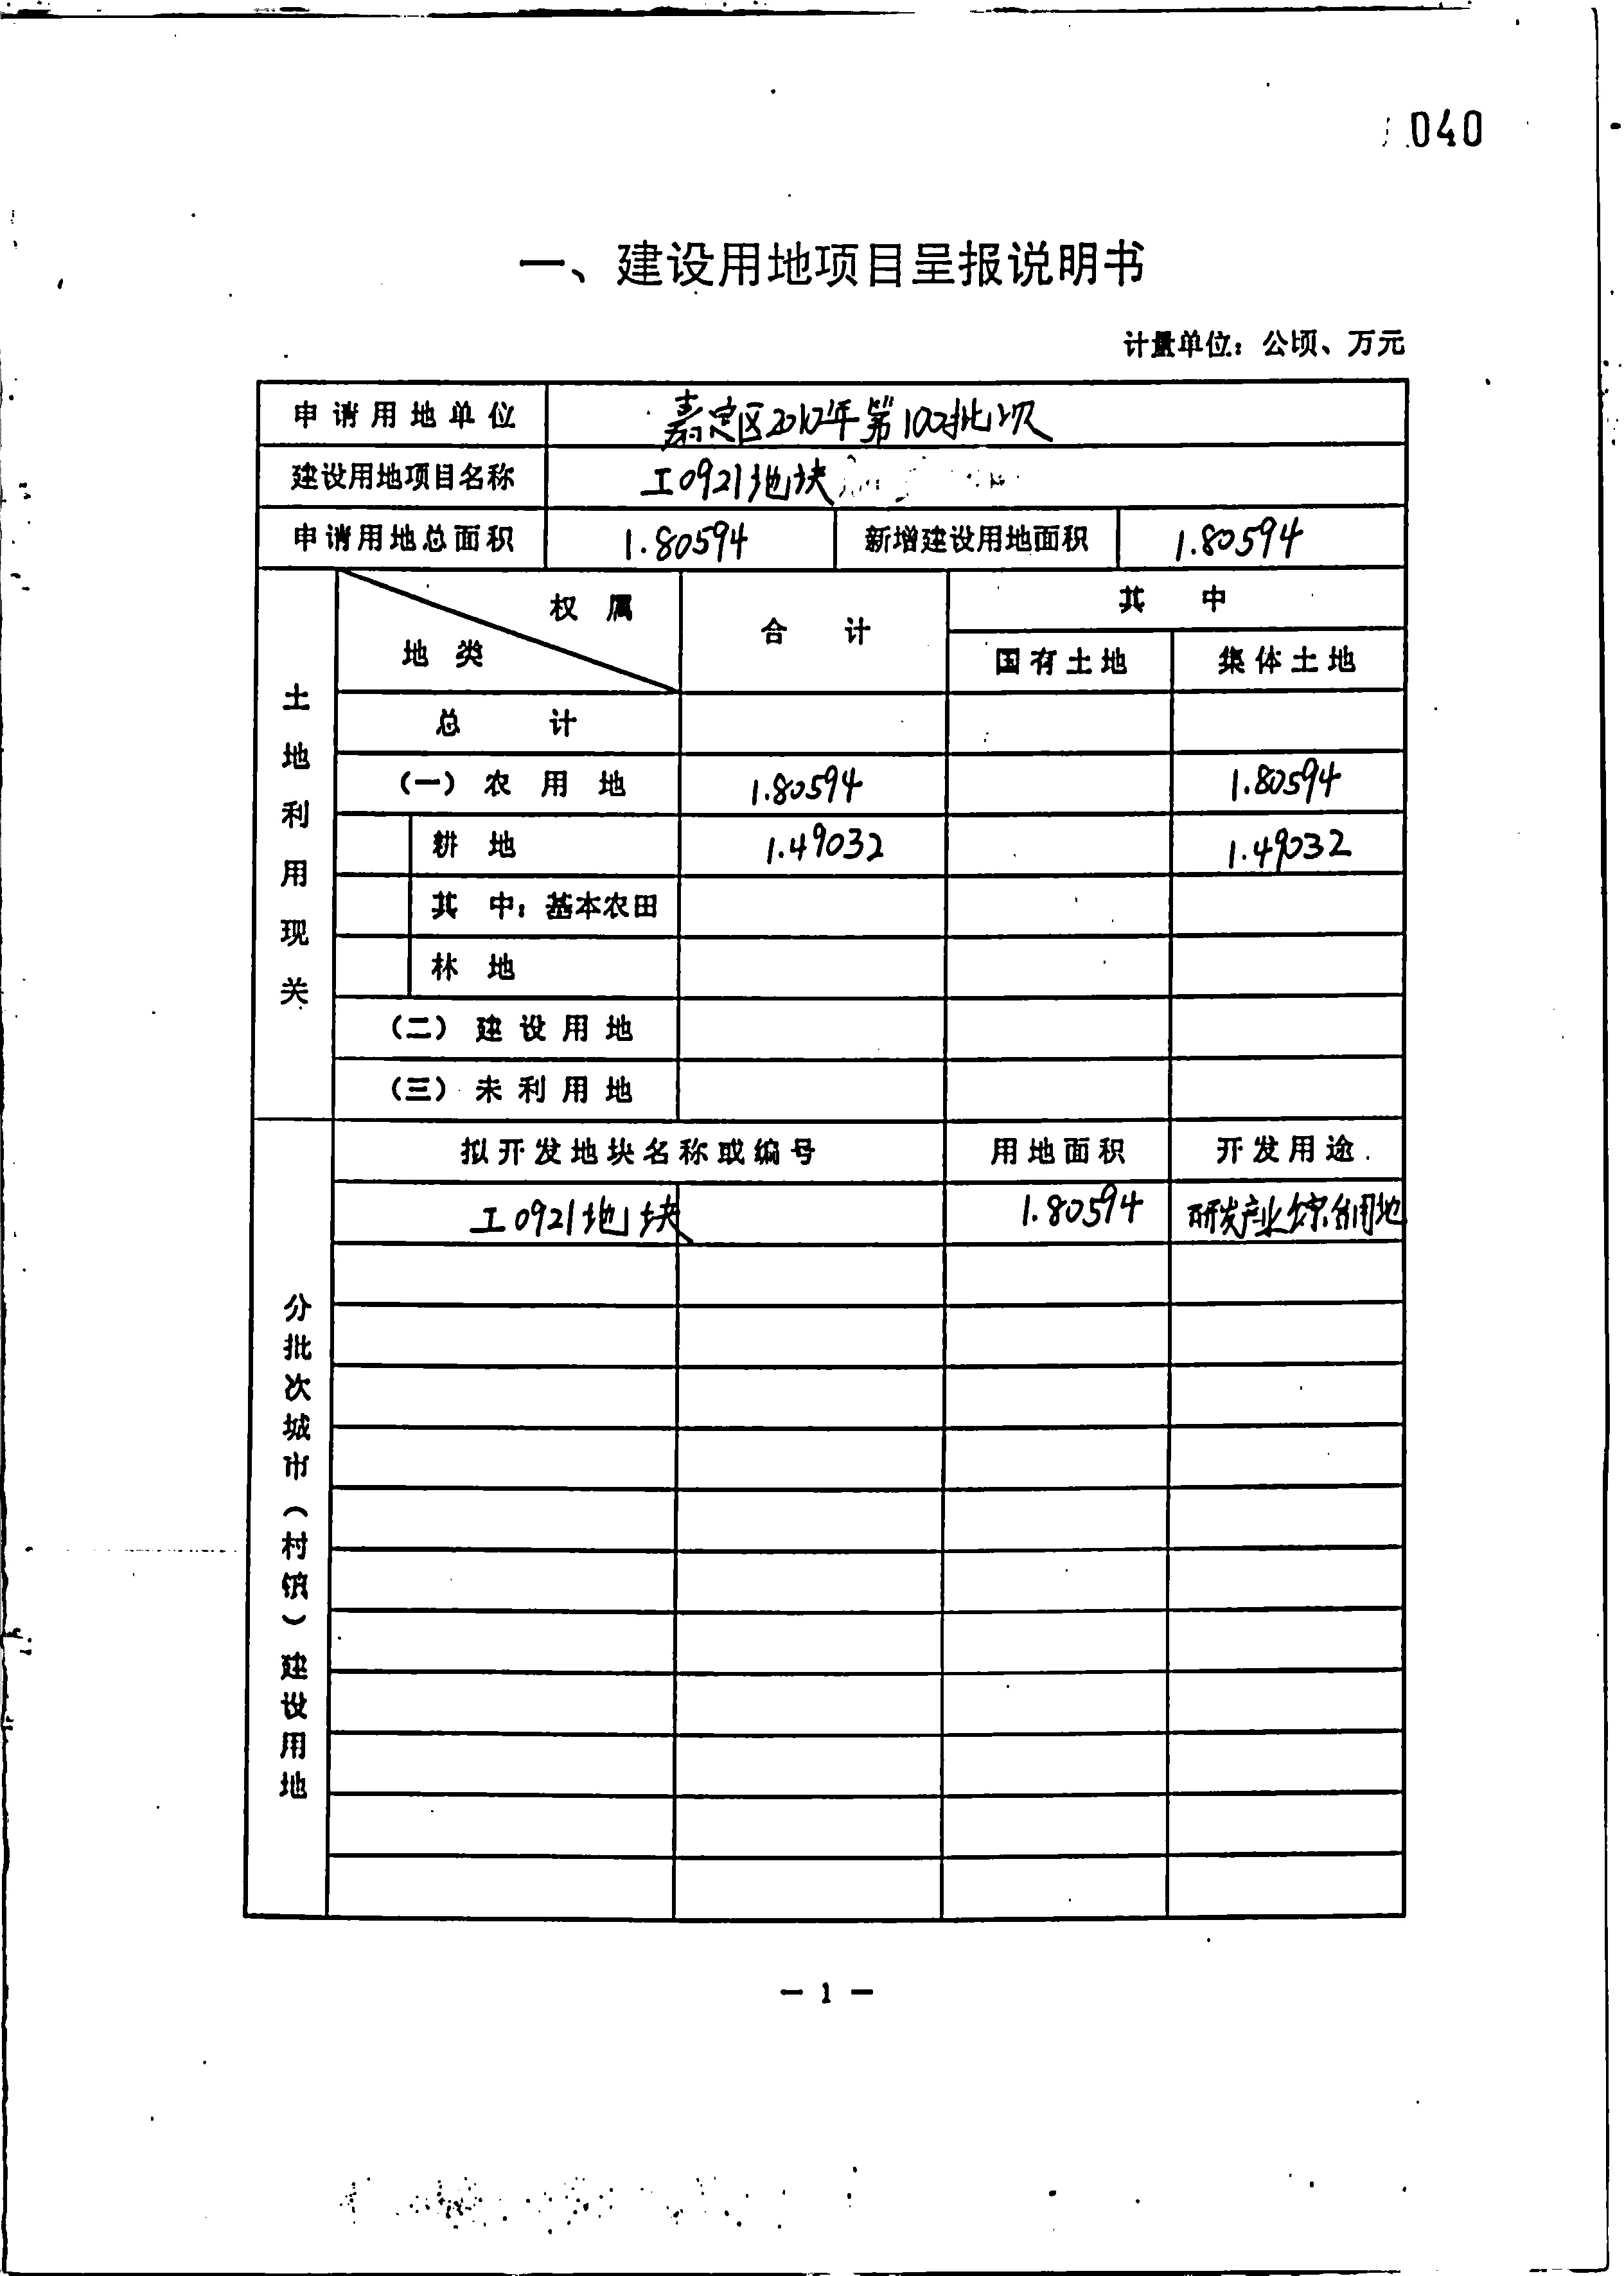 040
一、建设用地项目呈报说明书
计量单位：公顷、万元
申请用地单位 嘉定区2012年第100批次
建设用地项目名称 工0921地块
申请用地总面积 1.80594 新增建设用地面积 1.80594
土地利用现关
权属
地类
合计
其中
国有土地 集体土地
总计
（一）农用地 1.80594 1.80594
耕地 1.49032 1.49032
其中：基本农田
林地
（二）建设用地
（三）未利用地
分批次城市（村镇）建设用地
拟开发地块名称或编号 用地面积 开发用途
工0921地块 1.80594 研发产业综合用地
— 1 —